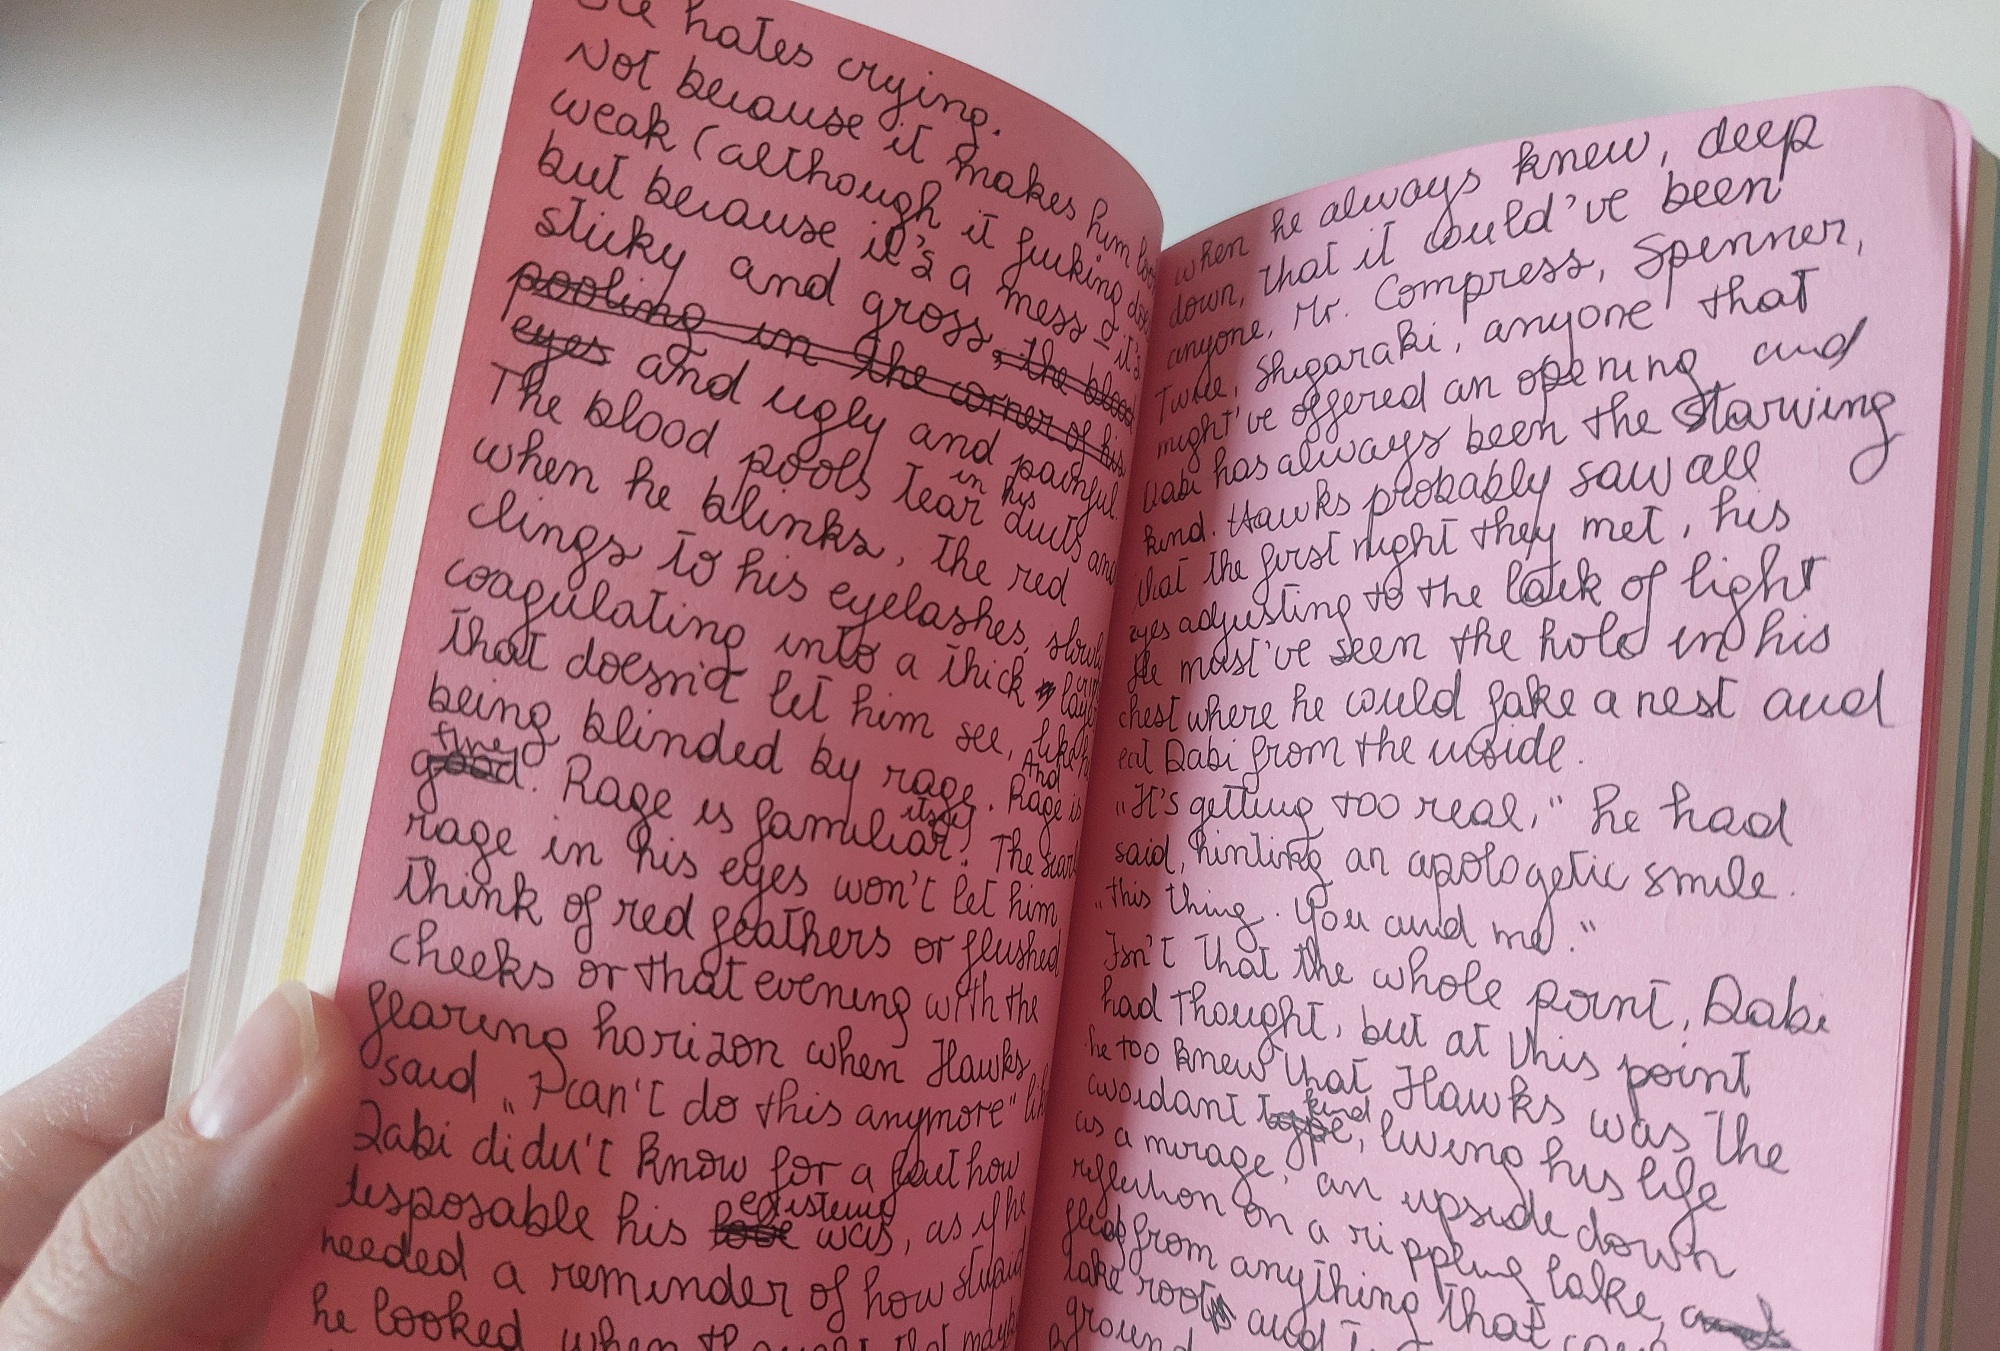 hates crying.
Not because it makes him
weak (although it fucking does
but because it's a mess & it's
sticky and gross, the blood
pooling in the corner of his
eyes and ugly and painful.
The blood pools in his tear ducts and
when he blinks, the red
clings to his eyelashes, slowly
coagulating into a thick layer
that doesn't let him see, like he
being blinded by rage. And Rage is
good fine. Rage is familiar. The
rage itself in his eyes won't let him
think of red feathers or flushed
cheeks or that evening with the
flaring horizon when Hawks
said „I can't do this anymore"
Dabi didn't know for a fact how
disposable his love existence was, as if he
needed a reminder of how stupid
he looked when
when he always knew, deep
down, that it could've been
anyone, Mr. Compress, Spenner,
Twice, Shigaraki, anyone that
might've offered an opening and
Dabi has always been the starving
kind. Hawks probably saw all
that the first night they met, his
eyes adjusting to the lack of light
He must've seen the hole in his
chest where he could fake a nest and
eat Dabi from the inside.
„It's getting too real," he had
said, hinting an apologetic smile.
„this thing. You and me."
Isn't that the whole point, Dabi
had thought, but at this point
he too knew that Hawks was the
avoidant type kind, living his life
as a mirage, an upside down
reflection on a rippling lake, and
from anything that
take roots and
ground